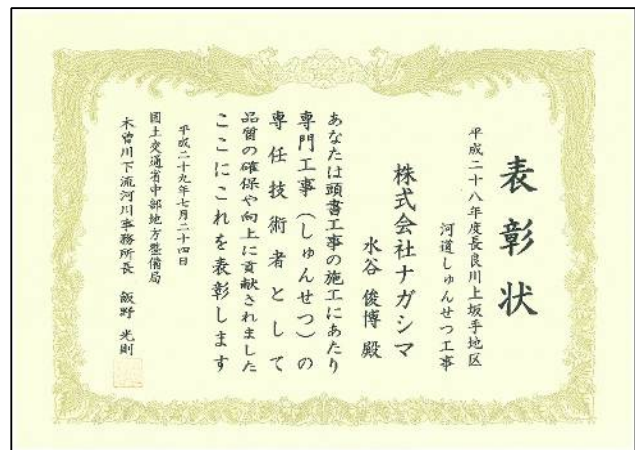 表彰状
平成二十八年度長良川上坂手地区
河道しゅんせつ工事
株式会社ナガシマ
水谷 俊博 殿
あなたは頭書工事の施工にあたり
専門工事(しゅんせつ)の
専任技術者として
品質の確保や向上に貢献されました
ここにこれを表彰します
平成二十九年七月二十四日
国土交通省中部地方整備局
木曽川下流河川事務所長 飯野 光則